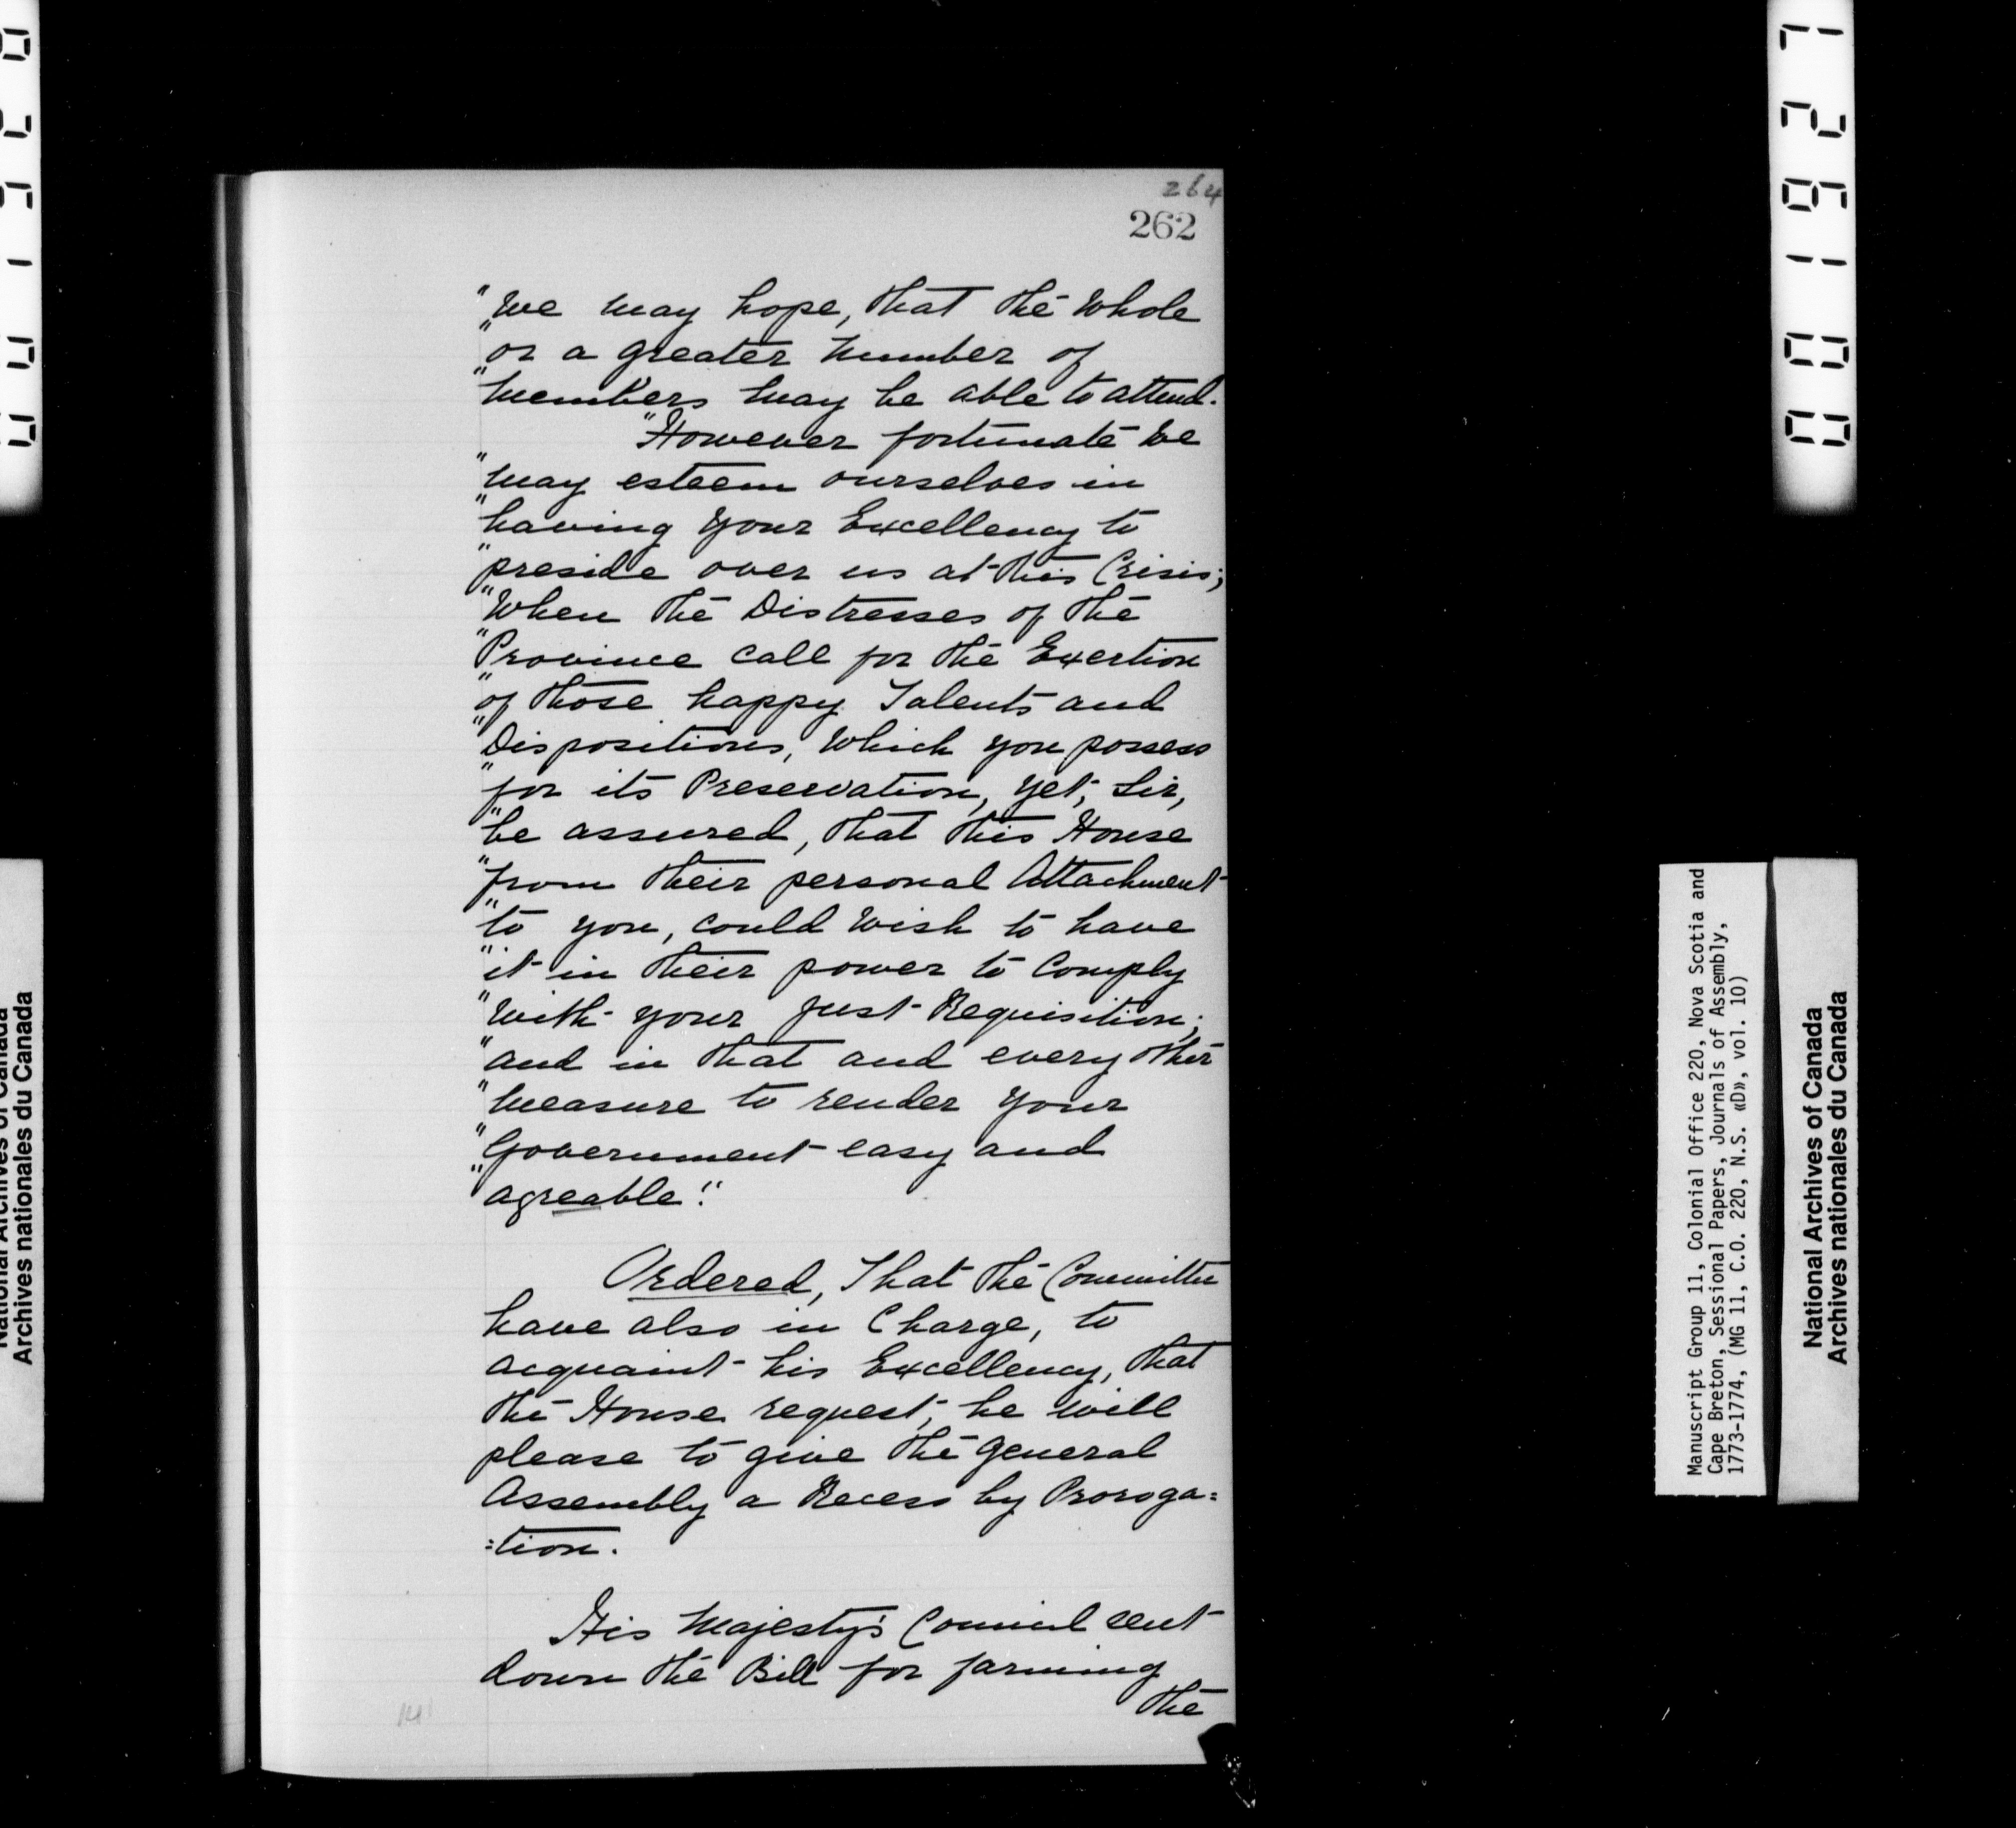 264
262
"We may hope, that the Whole
"or a greater number of
"members may be able to attend.
"However fortunate we
"may esteem ourselves in
"having your Excellency to
"preside over us at this Crisis;
"When the Distresses of the
"Province call for the Exertion
"of those happy Talents and
"Dispositions, which you possess
"for its Preservation, yet, Sir,
"be assured, that this House
"from their personal Attachment
"to you, could wish to have
"it in their power to Comply
"with your just Requisition;
"and in that and every other
"measure to render your
"Government easy and
"agreable".
Ordered, That the Committee
have also in Charge, to
acquaint his Excellency, that
the House request, he will
please to give the General
Assembly a Recess by Proroga=
=tion.
His Majesty's Council sent
down the Bill for farming
the
141
Manuscript Group 11, Colonial Office 220, Nova Scotia and
Cape Breton, Sessional Papers, Journals of Assembly,
1773-1774, (MG 11, C.O. 220, N.S. «D», vol. 10)
National Archives of Canada
Archives nationales du Canada
National Archives of Canada
Archives nationales du Canada